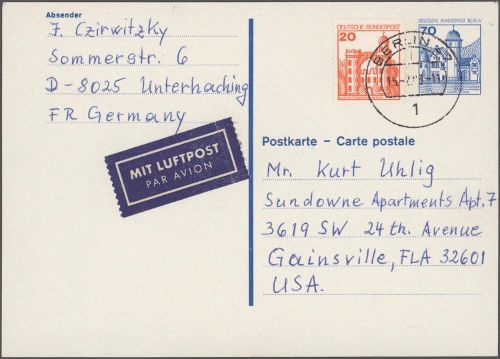 Absender
J. Czirwitzky
Sommerstr. 6
D-8025 Unterhaching
FR Germany
20
DEUTSCHE BUNDESPOST
70
DEUTSCHE BUNDESPOST BERLIN
BERLIN
1
MIT LUFTPOST
PAR AVION
Postkarte – Carte postale
Mr. Kurt Uhlig
Sundowne Apartments Apt. 7
3619 SW 24 th. Avenue
Gainsville, FLA 32601
USA.